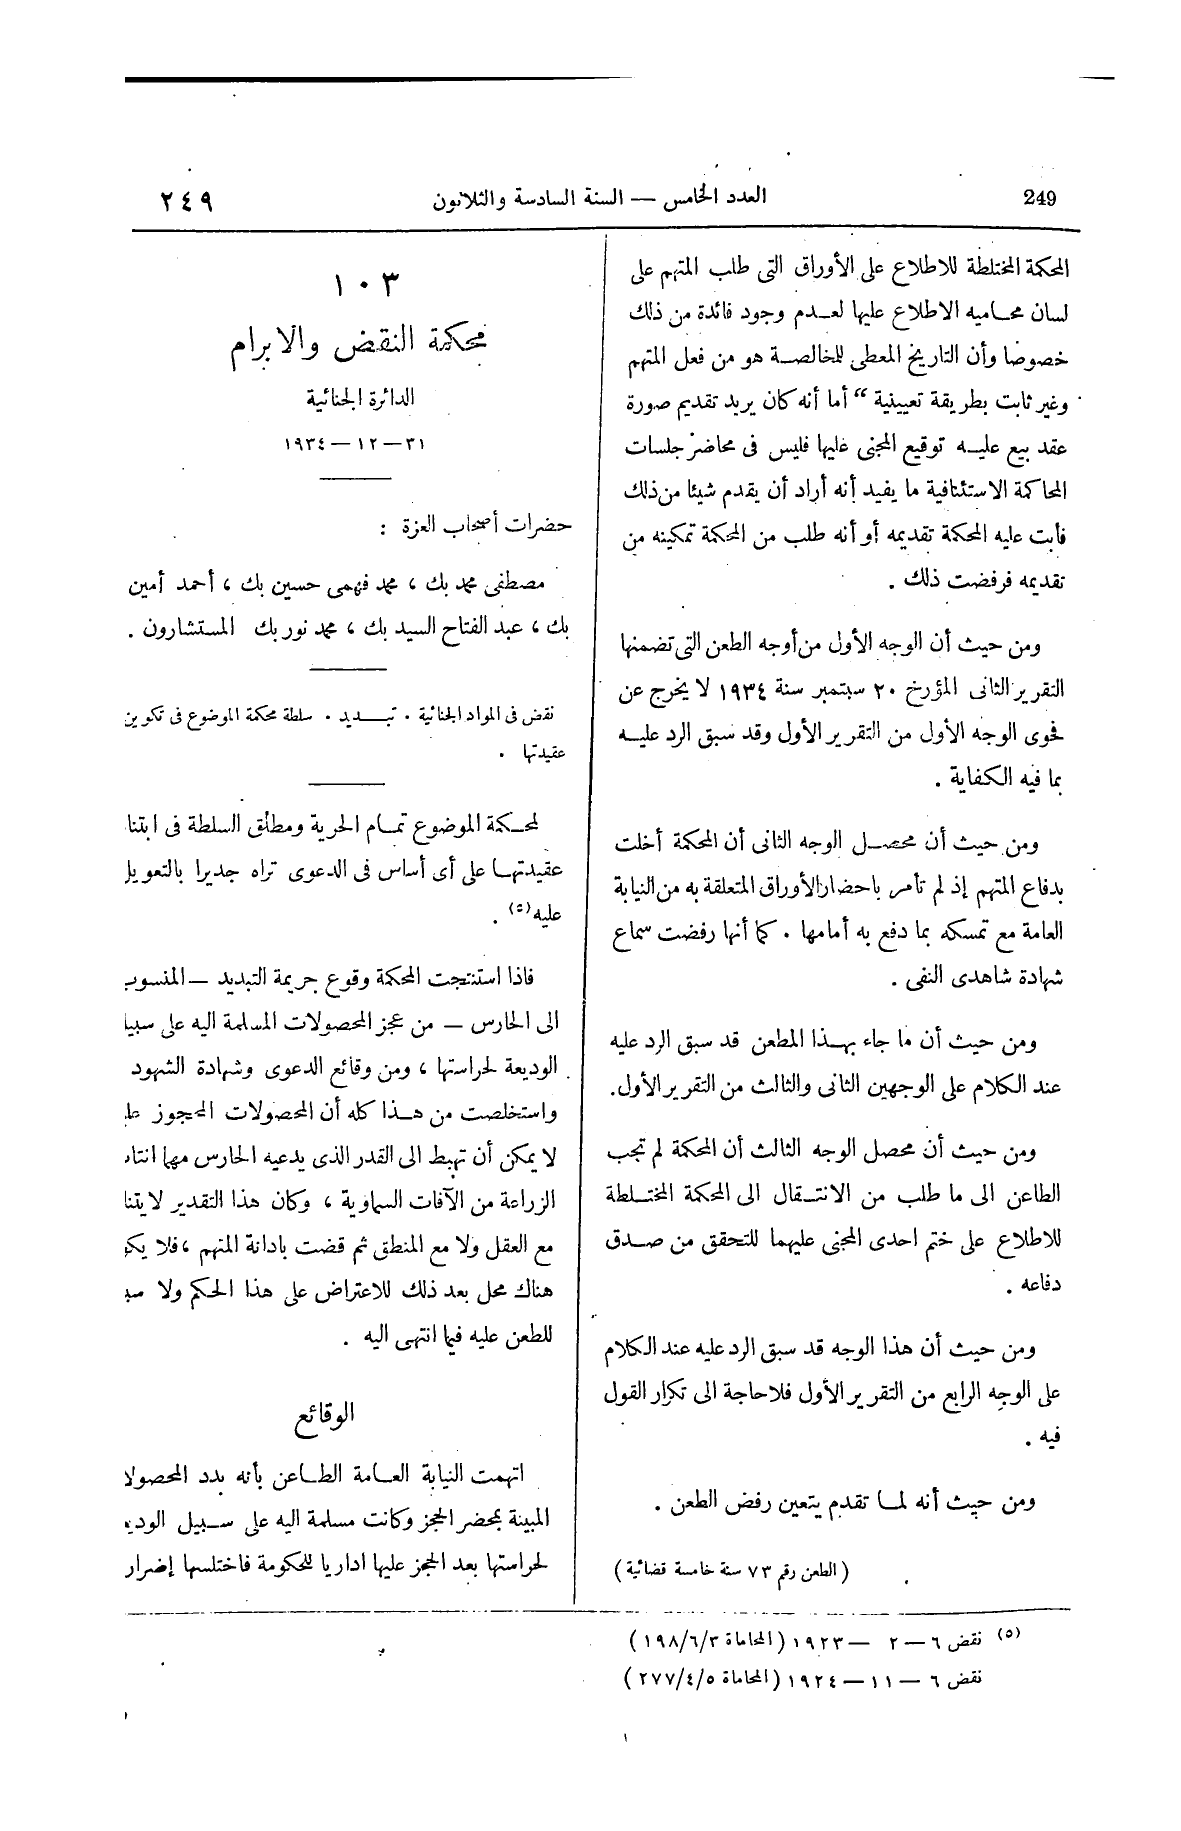 249
العدد الخامس — السنة السادسة والثلاثون
٢٤٩
المحكمة المختلطة للاطلاع على الأوراق التى طلب المتهم على
لسان محاميه الاطلاع عليها لعدم وجود فائدة من ذلك
خصوصا وأن التاريخ المعطى للمخالصة هو من فعل المتهم
وغير ثابت بطريقة تعيينية “ أما أنه كان يريد تقديم صورة
عقد بيع عليه توقيع المجنى عليها فليس فى محاضر جلسات
المحاكمة الاستئنافية ما يفيد أنه أراد أن يقدم شيئا من ذلك
فأبت عليه المحكمة تقديمه أو أنه طلب من المحكمة تمكينه من
تقديمه فرفضت ذلك .
ومن حيث أن الوجه الأول من أوجه الطعن التى تضمنها
التقرير الثانى المؤرخ ٢٠ سبتمبر سنة ١٩٣٤ لا يخرج عن
فحوى الوجه الأول من التقرير الأول وقد سبق الرد عليه
بما فيه الكفاية .
ومن حيث أن محصل الوجه الثانى أن المحكمة أخلت
بدفاع المتهم إذ لم تأمر باحضار الأوراق المتعلقة به من النيابة
العامة مع تمسكه بما دفع به أمامها . كما أنها رفضت سماع
شهادة شاهدى النفى .
ومن حيث أن ما جاء بهذا المطعن قد سبق الرد عليه
عند الكلام على الوجهين الثانى والثالث من التقرير الأول.
ومن حيث أن محصل الوجه الثالث أن المحكمة لم تجب
الطاعن الى ما طلب من الانتقال الى المحكمة المختلطة
للاطلاع على ختم احدى المجنى عليهما للتحقق من صدق
دفاعه .
ومن حيث أن هذا الوجه قد سبق الرد عليه عند الكلام
على الوجه الرابع من التقرير الأول فلا حاجة الى تكرار القول
فيه .
ومن حيث أنه لما تقدم يتعين رفض الطعن .
( الطعن رقم ٧٣ سنة خامسة قضائية )
١٠٣
محكمة النقض والابرام
الدائرة الجنائية
٣١ — ١٢ — ١٩٣٤
حضرات أصحاب العزة :
مصطفى محمد بك ، محمد فهمى حسين بك ، أحمد أمين
بك ، عبد الفتاح السيد بك ، محمد نور بك المستشارون .
نقض فى المواد الجنائية . تبديد . سلطة محكمة الموضوع فى تكوين
عقيدتها .
لمحكمة الموضوع تمام الحرية ومطلق السلطة فى ابتنا
عقيدتها على أى أساس فى الدعوى تراه جديرا بالتعويل
عليه(٥) .
فاذا استنتجت المحكمة وقوع جريمة التبديد — المنسوب
الى الحارس — من عجز المحصولات المسلمة اليه على سبيل
الوديعة لحراستها ، ومن وقائع الدعوى وشهادة الشهود
واستخلصت من هذا كله أن المحصولات المحجوز علي
لا يمكن أن تهبط الى القدر الذى يدعيه الحارس مهما انتاب
الزراعة من الآفات السماوية ، وكان هذا التقدير لا يتنا
مع العقل ولا مع المنطق ثم قضت بادانة المتهم ، فلا يكو
هناك محل بعد ذلك للاعتراض على هذا الحكم ولا سبي
للطعن عليه فيما انتهى اليه .
الوقائع
اتهمت النيابة العامة الطاعن بأنه بدد المحصولا
المبينة بمحضر الحجز وكانت مسلمة اليه على سبيل الوديع
لحراستها بعد الحجز عليها اداريا للحكومة فاختلسها إضرار
(٥) نقض ٦ — ٢ — ١٩٢٣ ( المحاماة ٣/٦/١٩٨ )
نقض ٦ — ١١ — ١٩٢٤ ( المحاماة ٥/٤/٢٧٧ )